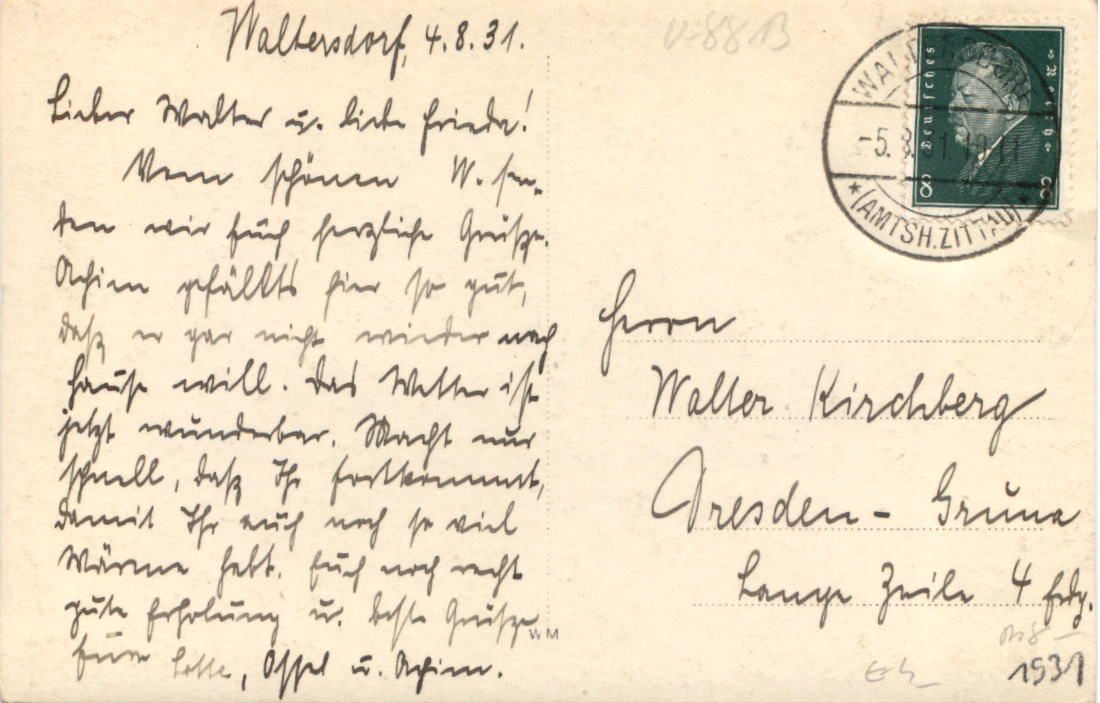 Waltersdorf, 4.8.31.
Lieber Walter u. liebe Frieda!
Vom schönen W. sen-
den wir Euch herzliche Grüße.
Achim gefällts hier so gut,
daß er gar nicht wieder nach
Hause will. Das Wetter ist
jetzt wunderbar. Macht nur
schnell, daß Ihr fortkommt,
damit Ihr auch noch so viel
Wärme habt. Euch noch recht
gute Erholung u. beste Grüße
Eure Lotte, u. Achim.
WM
Deutsches Reich
8 8
WALTERSDORF
-5.8.31.10-11
*(AMTSH.ZITTAU)*
Herrn
Walter Kirchberg
Dresden - Gruna
Lange Zeile 4 Erdg.
1931